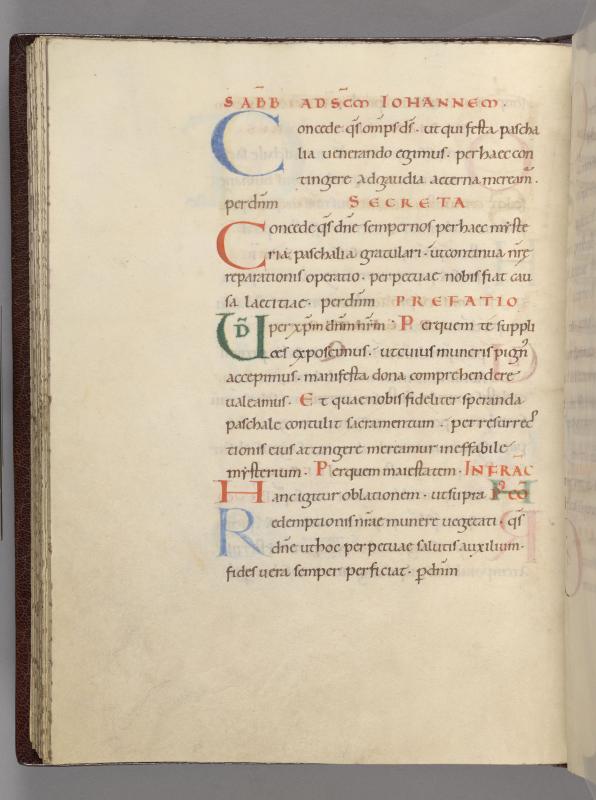 SABB̄ AD SC̄M IOHANNEM.
Concede qs̄ omp̄s ds̄. ut qui festa pascha
lia uenerando egimus. per haec con
tingere ad gaudia aeterna meream̄.
per dn̄m SECRETA
Concede qs̄ dn̄e semper nos per haec myste
ria paschalia gratulari. ut continua nr̄ę
reparationis operatio. perpetuae nobis fiat cau
sa laetitiae. per dn̄m PREFATIO
UD̄ per xp̄m dn̄m nr̄m. Per quem te suppli
ces exposcimus. ut cuius muneris pign̄
accepimus. manifesta dona comprehendere
ualeamus. Et quae nobis fideliter speranda
paschale contulit sacramentum. per resurrec
tionis eius attingere mereamur ineffabile
mysterium. Per quem maiestatem. INFRA AC̄
Hanc igitur oblationem. ut supra P̄ CŌ
Redemptionis nr̄ae munere uegetati. qs̄
dn̄e ut hoc perpetuae salutis auxilium.
fides uera semper perficiat. p̄ dn̄m